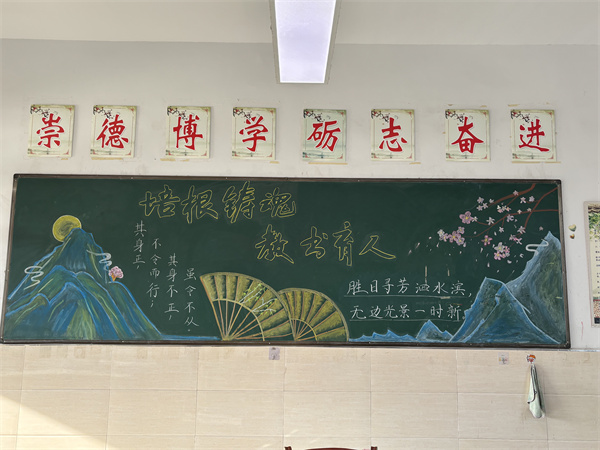 崇德博学砺志奋进
培根铸魂
教书育人
其身正,
不令而行;
其身不正,
虽令不从
胜日寻芳泗水滨,
无边光景一时新